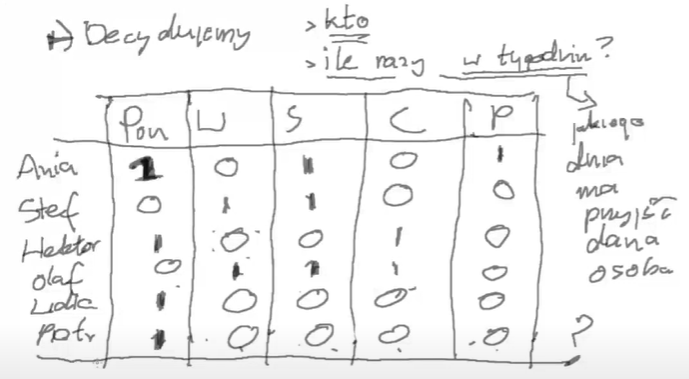 → Decydujemy > kto
> ile razy w tygodniu?
Pon W S C P
Ania 1 0 1 0 1
Stef 0 1 1 0 0
Hektor 1 0 0 1 0
Olaf 0 1 1 1 0
Lidia 1 0 0 0 0
Piotr 1 0 0 0 0 ?
jakiego
dnia
ma
przyjść
dana
osoba